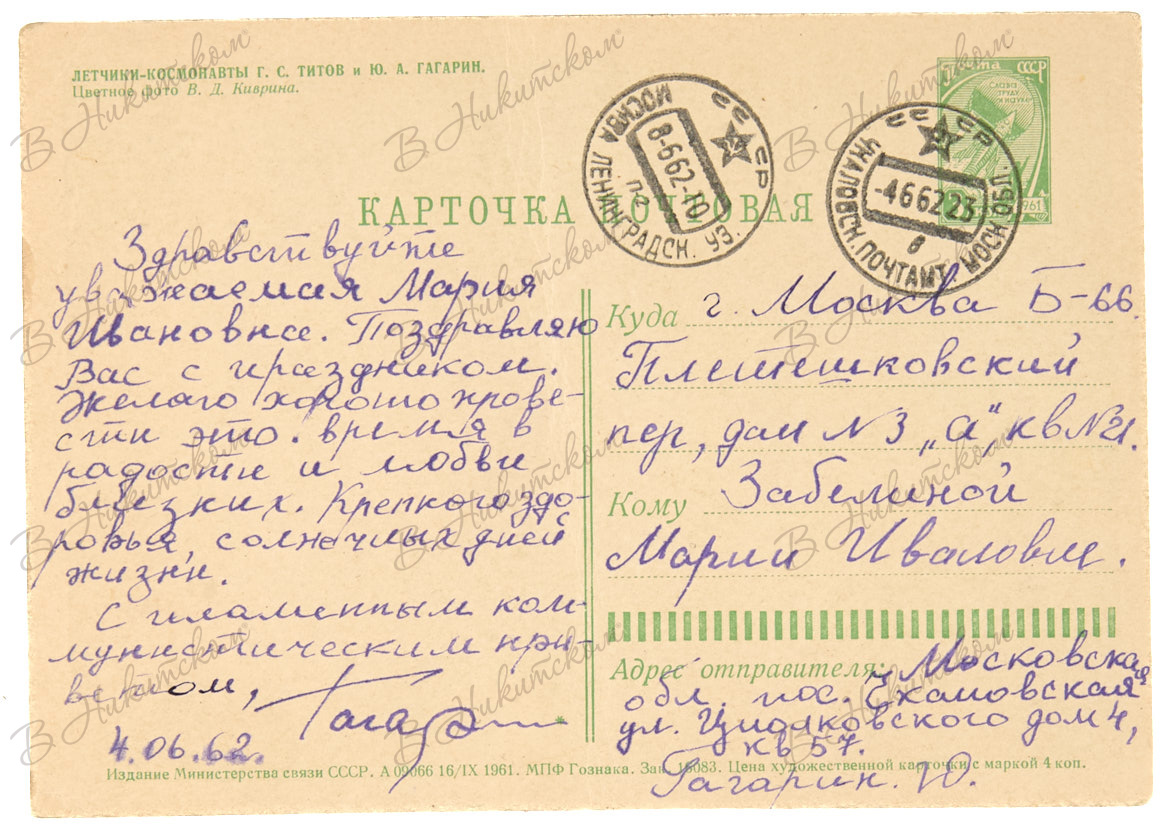 ЛЕТЧИКИ-КОСМОНАВТЫ Г. С. ТИТОВ и Ю. А. ГАГАРИН.
Цветное фото В. Д. Киврина.
МОСКВА ЛЕНИНГРАДСК. УЗ.
СССР
8-662-10
п-2
СССР
ЧКАЛОВСК. ПОЧТАМТ МОСК. ОБЛ.
-4662 23
в
Почта СССР
СЛАВА
ТРУДУ
И НАУКЕ
1961
КАРТОЧКА ПОЧТОВАЯ
Здравствуйте
уважаемая Мария
Ивановна. Поздравляю
Вас с праздником.
Желаю хорошо прове-
сти это время в
радости и любви
близких. Крепкого здо-
ровья, солнечных дней
жизни.
С пламенным ком-
мунистическим при-
ветом,
Гагарин
4.06.62.
Куда г. Москва Б-66.
Плетешковский
пер, дом №3 „а", кв №21.
Кому Забелиной
Марии Ивановне.
Адрес отправителя: Московская
обл. пос. Чкаловская
ул. Циолковского дом 4,
кв 57.
Гагарин. Ю.
Издание Министерства связи СССР. А 09066 16/IX 1961. МПФ Гознака. Зак. 16083. Цена художественной карточки с маркой 4 коп.
В Никитском